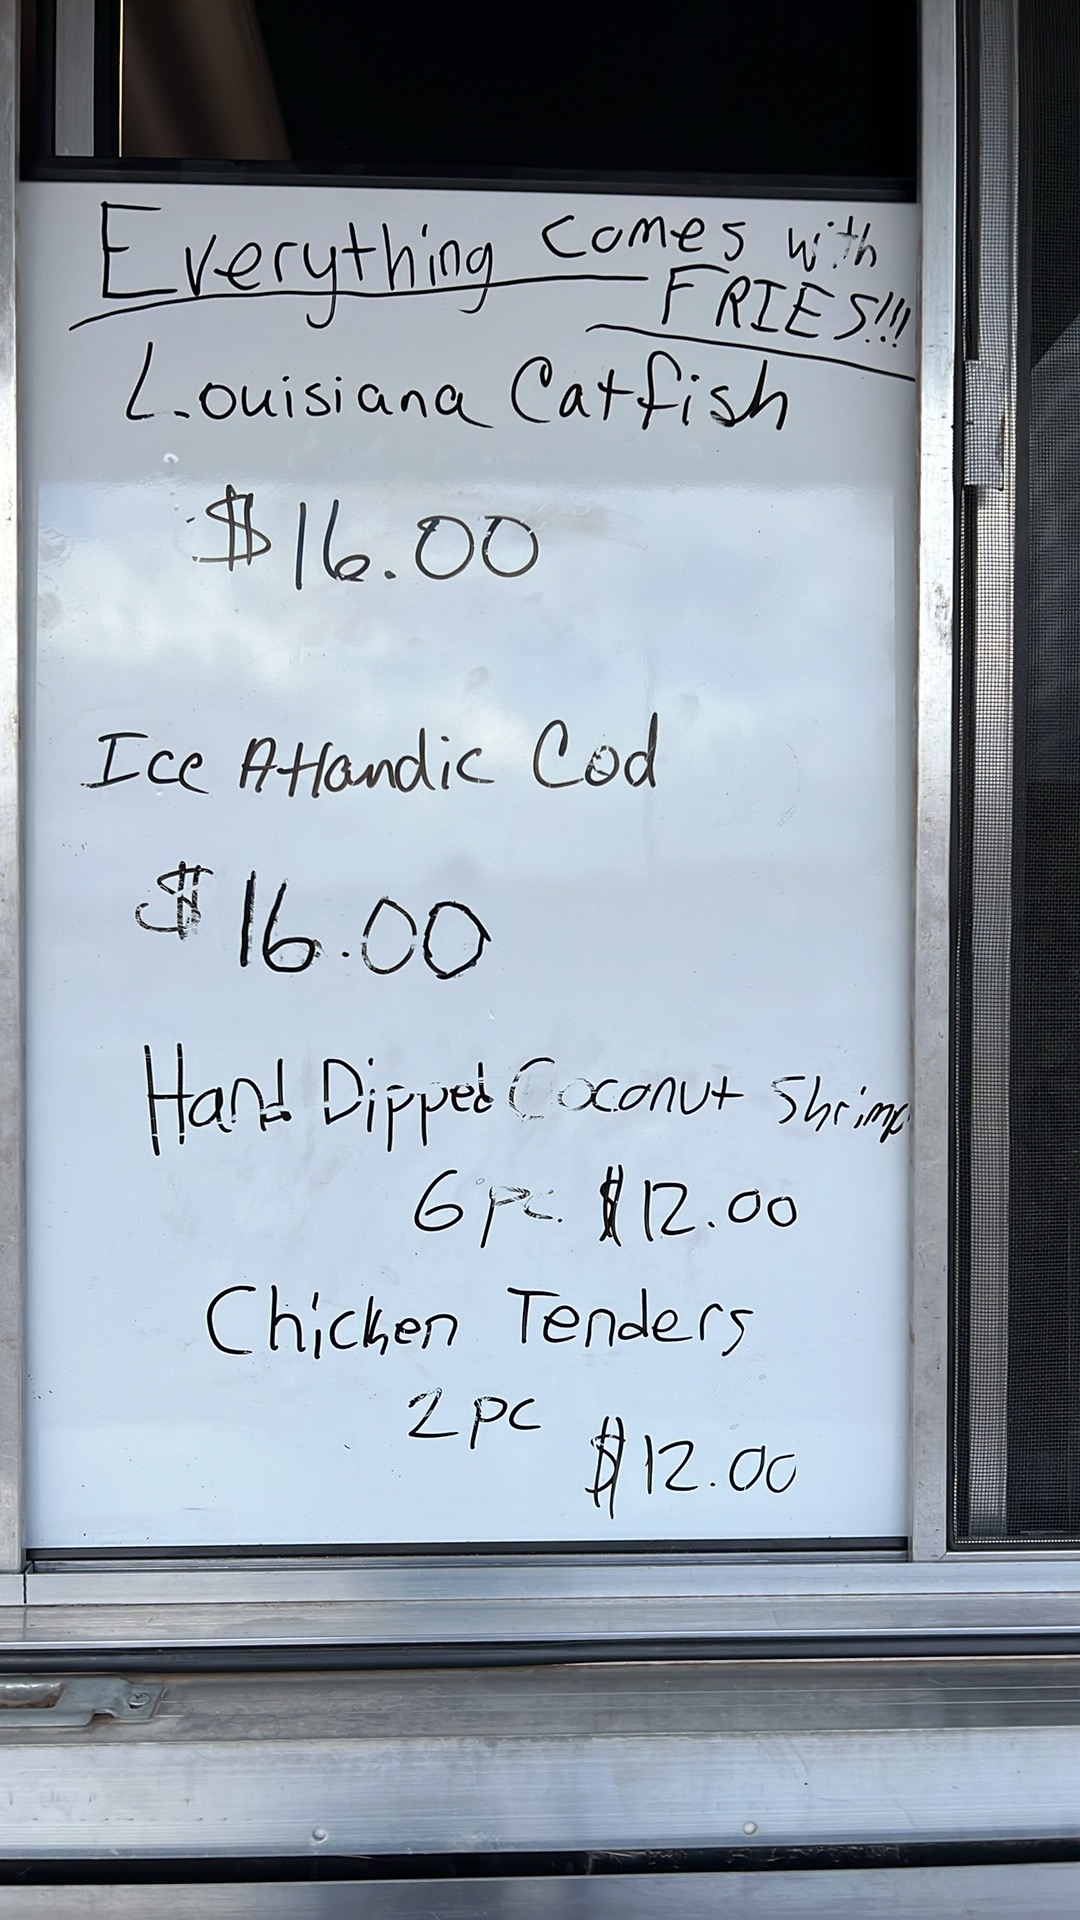 Everything comes with
FRIES!!!
Louisiana Catfish
$16.00
Ice Atlandic Cod
$16.00
Hand Dipped Coconut Shrimp
6pc. $12.00
Chicken Tenders
2pc
$12.00